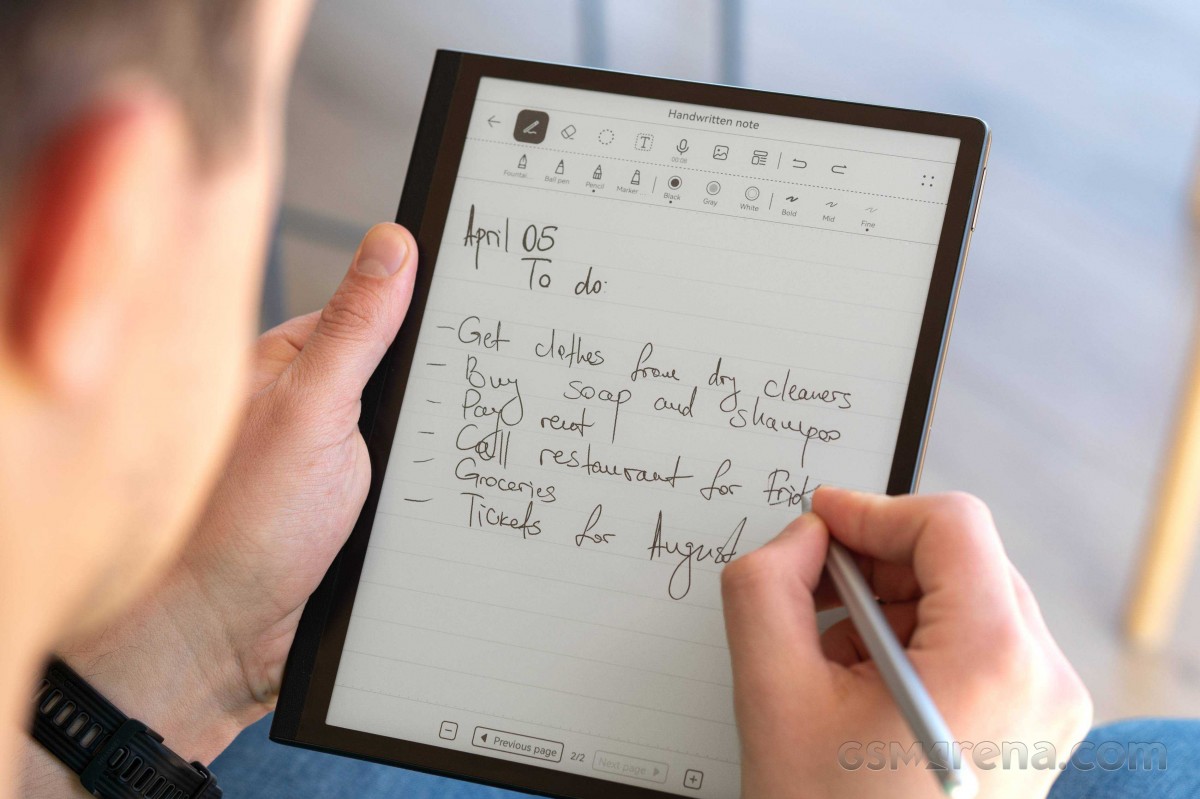 Handwritten note
T
00:06
Fountai
Ball pen
Pencil
Marker
Black
Gray
White
Bold
Mid
Fine
April 05
To do:
- Get clothes from dry cleaners
- Buy soap and shampoo
- Pay rent
- Call restaurant for Frid
- Groceries
- Tickets for August
Previous page
2/2
Next page
GSMArena.com